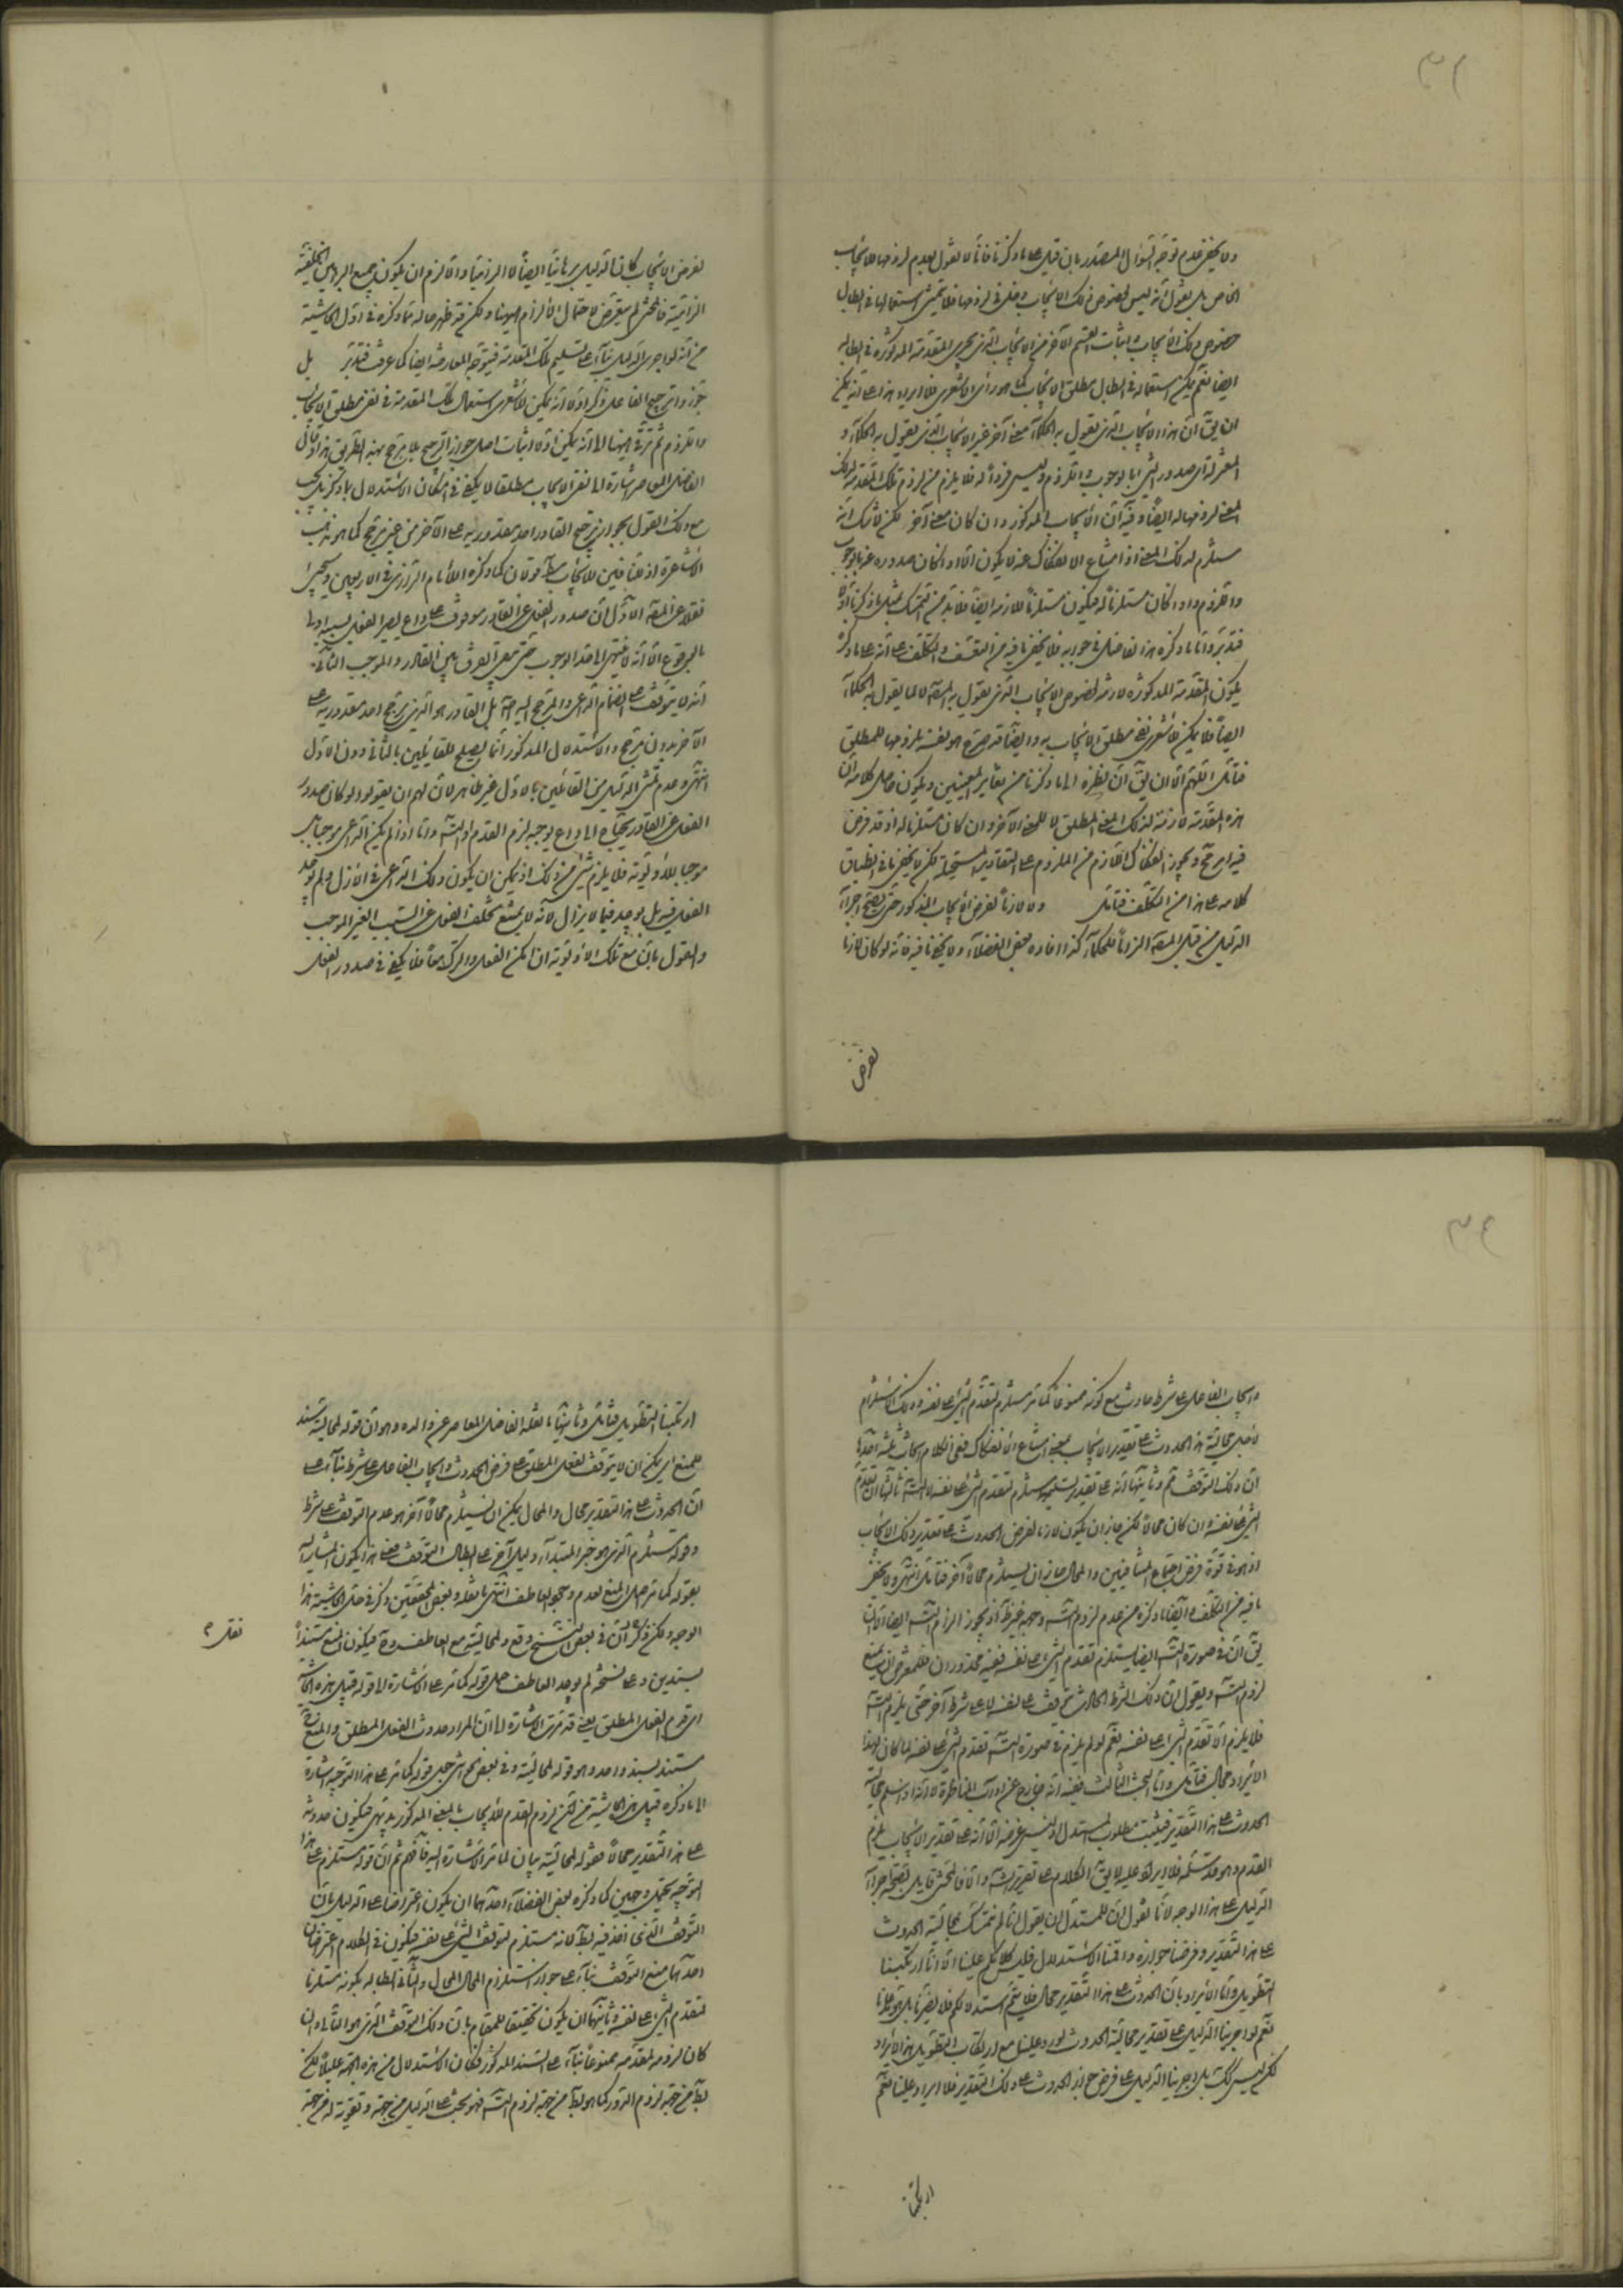 ولا يخفى عدم توجه السؤال المصدر بان قيل على ما ذكرنا فانا لا نقول بعدم لزومها للايجاب
الخاص بل نقول انه ليس لخصوص ذلك الايجاب دخل في لزومها فلا يتمشى استعمالها في ابطال
خصوص ذلك الايجاب واثبات القسم الآخر من الايجاب الذي يجري المقدمة المذكورة في ابطاله
ايضا نعم يمكن استعماله في ابطال مطلق الايجاب كما هو رأي الاشعري فلا ايراد هذا على انه يمكن
ان يق ان هذا الايجاب الذي يقول به الحكماء معنى آخر غير الايجاب الذي يقول به الحكماء و
المعتزلة اي صدور الشئ بالوجوب واللزوم وليس فردا له فلا يلزم من لزوم تلك المقدمة لذلك
المعنى لزومها له ايضا وفيه ان الايجاب المذكور وان كان معنى آخر لكن لا شك انه
مستلزم لذلك المعنى اذ امتناع الانفكاك عنه لا يكون الا اذا كان صدوره عنه بالوجوب
واللزوم واذا كان مستلزما له فيكون مستلزما للازمه ايضا فلا بد من التمسك بمثل ما ذكرنا اولا
فتدبر واما ما ذكره هذا الفاضل في جوابه فلا يخفى ما فيه من التعسف والتكلف على انه على ما ذكره
يكون المقدمة المذكورة لازمة لخصوص الايجاب الذي يقول به المص لا لما يقول به الحكماء
ايضا فلا يمكن للاشعري نفي مطلق الايجاب به وايضا قد صرح هو نفسه بلزومها للمطلق
فتأمل اللهم الا ان يق ان نظره الى ما ذكرنا من تغاير المعنيين ويكون حاصل كلامه ان
هذه المقدمة لازمة لذلك المعنى المطلق لا للمعنى الآخر وان كان مستلزما له اذ قد فرض
فيه امر مح ويجوز انفكاك اللازم من الملزوم على التقادير المستحيلة لكن لا يخفى ما في انطباق
كلامه على هذا من التكلف فتأمل ولا لازما لفرض الايجاب المذكور حتى يصح اجراء
الدليل من قبل المص الزاما للحكماء كذا افاده بعض الفضلاء ولا يخفى ما فيه فانه لو كان لازما
لفرض
لفرض الايجاب كان الدليل برهانيا ايضا لا الزاميا والا لزم ان يكون جميع البراهين الخلفية
الزامية فالمحشي لم يتعرض لاحتمال الالزام ههنا ولكن قد ظهر حاله مما ذكره في اول الحاشية
من انه لو اجرى الدليل بناء على تسليم تلك المقدمة فيتوجه المعارضة ايضا كما عرفت فتدبر بل
جوزوا ترجيح الفاعل ذكر اولا انه يمكن للاشعري استعمال تلك المقدمة في نفي مطلق الايجاب
واللزوم ثم ترقى ههنا الى انه يمكن اولا اثبات اصل جواز الترجيح بلا مرجح بهذه الطريق هذا وقال
الفاضل المعاصر اشارة الى نفي الايجاب مطلقا لا يكفي في امكان الاستدلال بما ذكر بل يجب
مع ذلك القول بجواز ترجيح القادر احد مقدوريه على الآخر من غير مرجح كما هو مذهب
الاشاعرة اذ للنافين للايجاب قولان كما ذكره الامام الرازي في الاربعين وسيجئ
نقلا عن المص الاول ان صدور الفعل عن القادر موقوف على داع يصير الفعل بسببه اولى
بالوقوع الا انه لا ينتهي الى حد الوجوب حتى يبقى الفرق بين القادر والموجب الثاني
انه لا يتوقف على انضمام الداعي والمرجح اليه بل القادر هو الذي يرجح احد مقدوريه على
الآخر بدون مرجح والاستدلال المذكور انما يصلح للقائلين بالثاني دون الاول
انتهى وعدم تمشي الدليل من القائلين بالاول غير ظاهر لان لهم ان يقولوا لو كان صدور
الفعل عن القادر يحتاج الى داع يوجبه لزم القدم او التسلسل واما اذا لم يكن الداعي موجبا بل
موجبا للاولوية فلا يلزم شئ من ذلك اذ يمكن ان يكون ذلك الداعي في الازل ولم يوجد
الفعل فيه بل يوجد فيما لا يزال لانه لا يمتنع تخلف الفعل عن السبب الغير الموجب
والقول بان مع تلك الاولوية ان امكن الفعل والترك معا فلا يكفي في صدور الفعل
وايجاب الفاعل على شرط حادث مع كونه ممنوعا كما مر مستلزم لتقدم الشئ على نفسه وذلك الاستلزام
لاجل محالية هذا الحدوث على تقدير الايجاب بمعنى امتناع الانفكاك ففي الكلام ابحاث ثلثة احدها
ان ذلك التوقف مم وثانيها انه على تقدير تسليمه مستلزم لتقدم الشئ على نفسه لا التس ثالثها ان تقدم
الشئ على نفسه وان كان محالا لكن جاز ان يكون لازما لفرض الحدوث على تقدير ذلك الايجاب
اذ هو في قوة فرض اجتماع المتنافيين والمحال جاز ان يستلزم محالا آخر فتأمل انتهى ولا يخفى
ما فيه من التكلف وايضا ما ذكره من عدم لزوم التس وجهه غير ظ اذ يجوز الزام التس ايضا الا ان
يق ان في صورة التس ايضا يستلزم تقدم الشئ على نفسه ففيه محذوران فللمعترض ان يمنع
لزوم التس ويقول ان ذلك الشرط الحادث يتوقف على نفسه لا على شرط آخر حتى يلزم التس
فلا يلزم الا تقدم الشئ على نفسه نعم لو لم يلزم في صورة التس تقدم الشئ على نفسه لما كان لهذا
الايراد مجال فتأمل واما البحث الثالث ففيه انه خارج عن آداب المناظرة لانه اذا سلم محالية
الحدوث على هذا التقدير فيثبت مطلوب المستدل اذ ليس غرضه الا انه على تقدير الايجاب يلزم
القدم وهو قد سلمه فلا ايراد عليه لا يق الكلام على تقرير التس واما فالمحشي قائل بصحة اجراء
الدليل على هذا الوجه لانا نقول ان للمستدل ان يقول انا لم نتمسك بمحالية الحدوث
على هذا التقدير وفرضنا جوازه واقمنا الاستدلال فليس لكم علينا الا انا ارتكبنا
التطويل واما الايراد بان الحدوث على هذا التقدير محال فلا يتم استدلالكم فلا يضرنا بل يقوينا
نعم لو اجرينا الدليل على تقدير محالية الحدوث لورد علينا مع ارتكاب التطويل هذا الايراد
لكن ليس كك بل اجرينا الدليل على فرض جواز الحدوث على ذلك التقدير فلا ايراد علينا نعم
ارتكبنا
ارتكبنا التطويل فتأمل وثانيها ما نقله الفاضل المعاصر عن والده وهو ان قوله لمحالية سند
للمنع اي يمكن ان لا يتوقف الفعل المطلق على فرض الحدوث وايجاب الفاعل على شرط بناء على
ان الحدوث على هذا التقدير محال والمحال يمكن ان يستلزم محالا آخر هو عدم التوقف على شرط
وقوله مستلزم الذي هو خبر المبتدأ دليل آخر على ابطال التوقف فعلى هذا يكون المشار اليه
بقوله كما مر اصل المنع لعدم وجود العاطف انتهى ما نقله وبعض المحققين ذكر في حل الحاشية هذا
الوجه ولكن ذكر ان في بعض النسخ وقع ولمحالية مع العاطف وح فيكون المنع مستندا
نقل م
بسندين وعلى نسخة لم يوجد العاطف حمل قوله كما مر على الاشارة الى قوله قبيل هذه الحاشية
اي قدم الفعل المطلق يعني قد مرت الاشارة الى ان المراد حدوث الفعل المطلق والمنع ح
مستند بسند واحد وهو قوله لمحالية وفي بعض الحواشي جعل قوله كما مر على هذا التوجيه اشارة
الى ما ذكره قبيل هذه الحاشية من لزوم القدم للايجاب بالمعنى المذكور بديهي فيكون حدوثه
على هذا التقدير محالا فقوله لمحالية بيان لما مر الاشارة اليه فافهم ثم ان قوله مستلزم على هذا
التوجيه يحتمل وجهين كما ذكره بعض الفضلاء احدهما ان يكون اعتراضا على الدليل بان
التوقف الذي اخذ فيه بط لانه مستلزم لتوقف الشئ على نفسه فيكون في الكلام اعتراضان
احدهما منع التوقف بناء على جواز استلزام المحال المحال والثاني ابطاله بكونه مستلزما
لتقدم الشئ على نفسه وثانيهما ان يكون تحقيقا للمقام بان ذلك التوقف الذي هو التالي وان
كان لزومه لمقدمه ممنوعا بناء على السند المذكور فكان الاستدلال من هذه الجهة عليلا لكن
بط من جهة لزوم الدور كما هو بط من جهة لزوم التس فهو بحث على الدليل من جهة وتقوية له من جهة